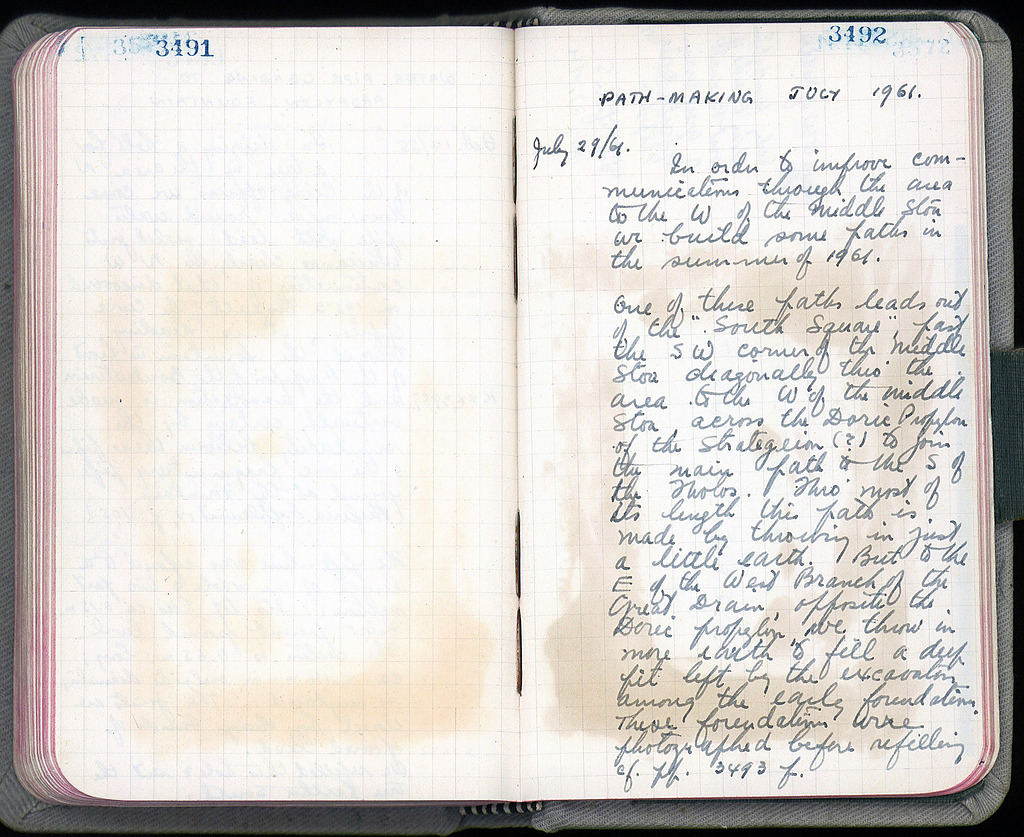 3491
3492
PATH-MAKING JULY 1961.
July 29/61.
In order to improve com-
munications through the area
to the W of the Middle Stoa
we build some paths in
the summer of 1961.
One of these paths leads out
of the "South Square", past
the SW corner of the Middle
Stoa diagonally thro the
area to the W of the Middle
Stoa across the Doric Propylon
of the Strategeion (?) to join
the main path to the S of
the Tholos. Thro most of
its length this path is
made by throwing in just
a little earth. But to the
E of the West Branch of the
Great Drain, opposite the
Doric propylon, we throw in
more earth to fill a deep
pit left by the excavators
among the early foundations.
These foundations were
photographed before refilling
cf. pp. 3493 f.